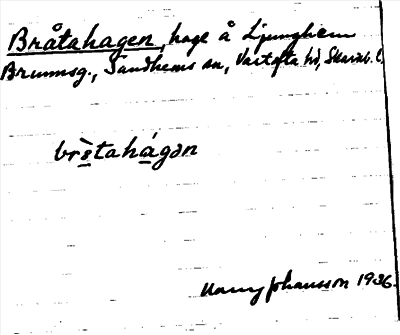 Bråtahagen, hage å Ljunghem
Brunnsg., Sandhems sn, Vartofta hd, Skarab. l.
br\u00f2\u0323tah\u00e1\u0323gən
Nanny Johansson 1936.